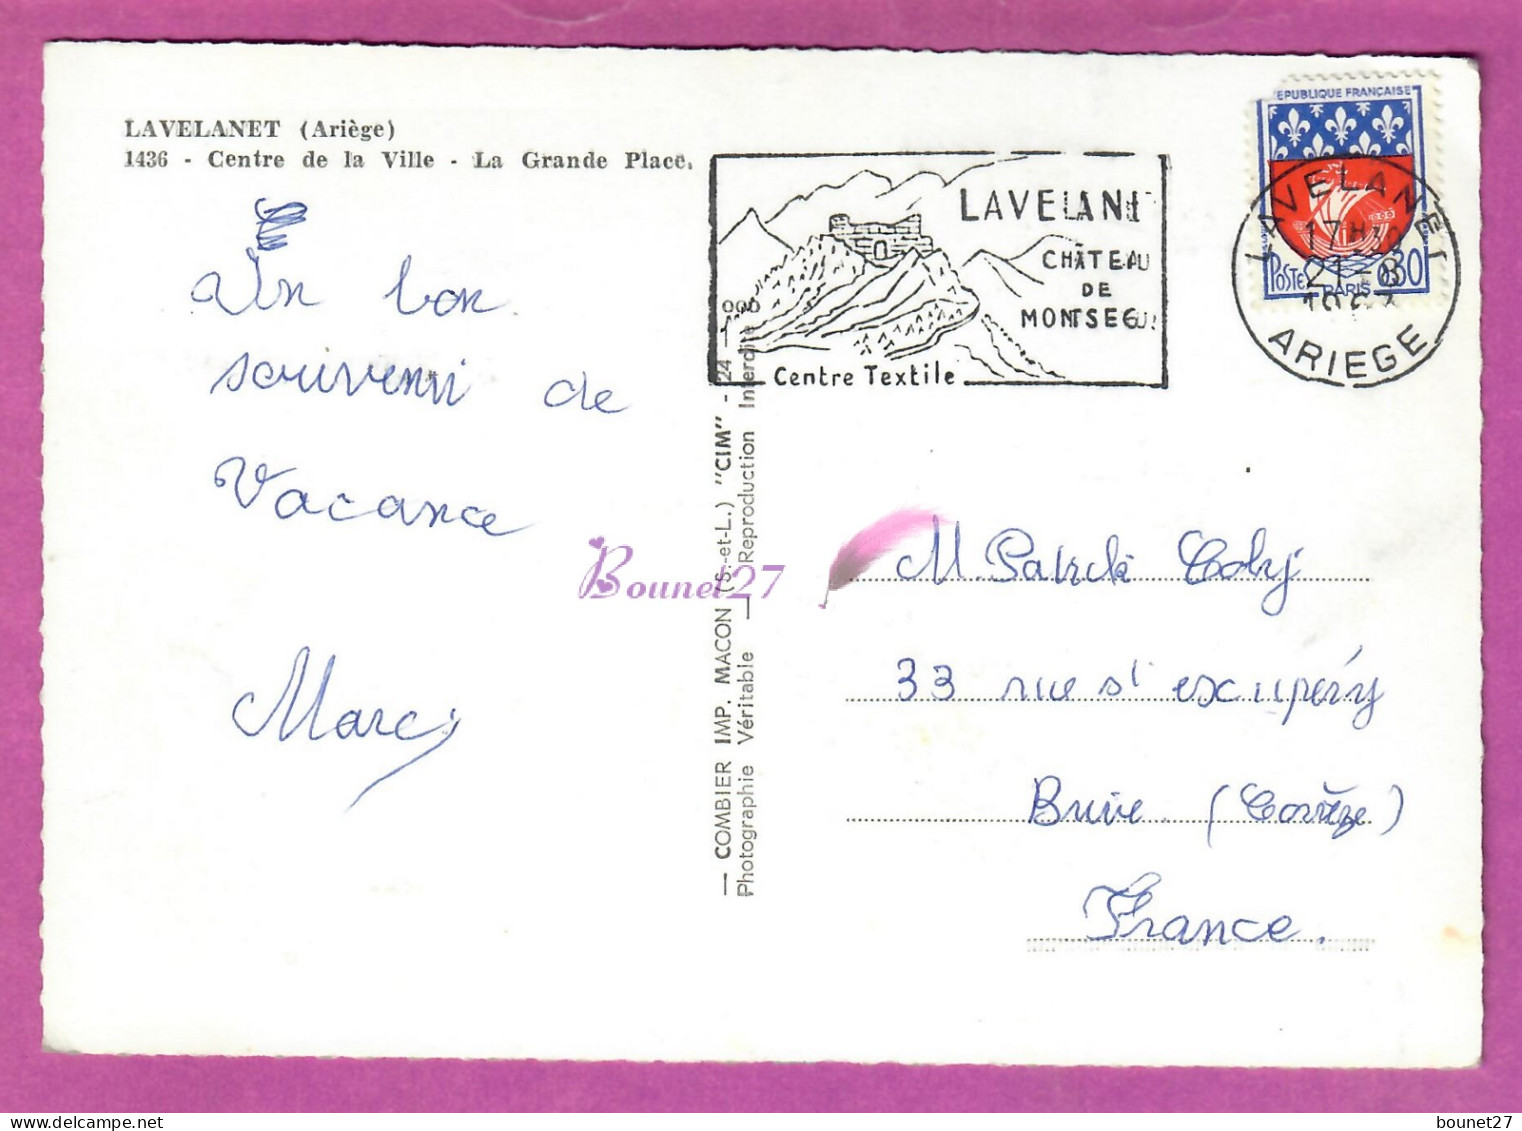 LAVELANET (Ariège)
1436 - Centre de la Ville - La Grande Place.
Un bon
souvenir de
Vacance
Marc
LAVELANE
CHÂTEAU
DE
MONTSEGU
Centre Textile
REPUBLIQUE FRANÇAISE
POSTES PARIS 0,30
LAVELANET
17H30
21-8
1967
ARIEGE
— COMBIER IMP. MACON (S.-et-L.) "CIM" - 24 —
Photographie Véritable — Reproduction Interdite
Bounet27
M. Patrick
33 rue st exupéry
Brive (Corrèze)
France.
bounet27